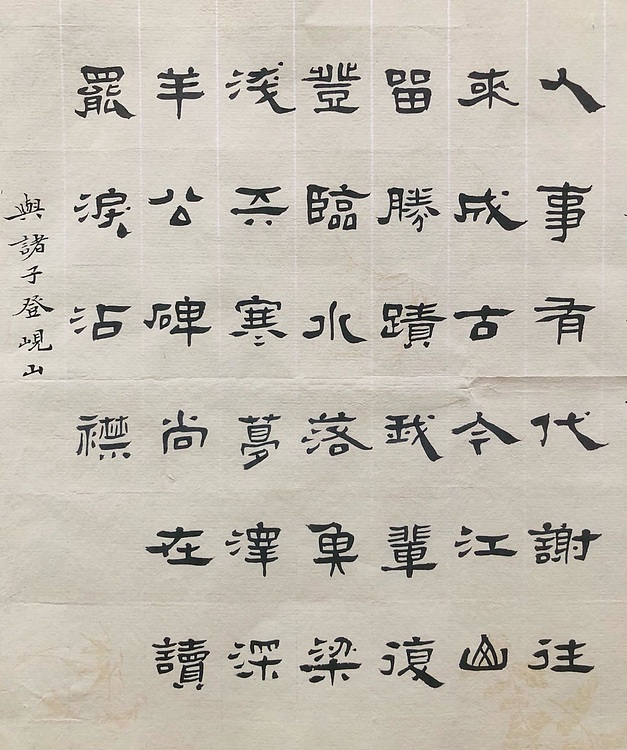 人事有代謝往
來成古今江山
留勝蹟我輩復
登臨水落魚梁
淺天寒夢澤深
羊公碑尚在讀
罷淚沾襟
與諸子登峴山